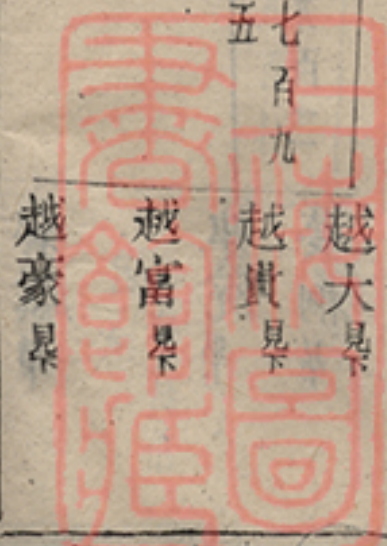 七百九
五
越大見下
越貴見下
越富見下
越豪見下